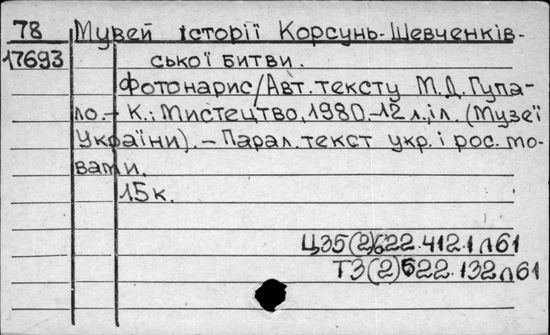 78 Музей історії Корсунь-Шевченків-
17693 ської битви.
Фотонарис/Авт. тексту М.Д. Гупа-
ло. – К.: Мистецтво, 1980. – 12 л. іл. (Музеї
України). – Парал. текст укр. і рос. мо-
вами.
15к.
Ц35(2)622.412.1 л61
Т3(2)622.132л61